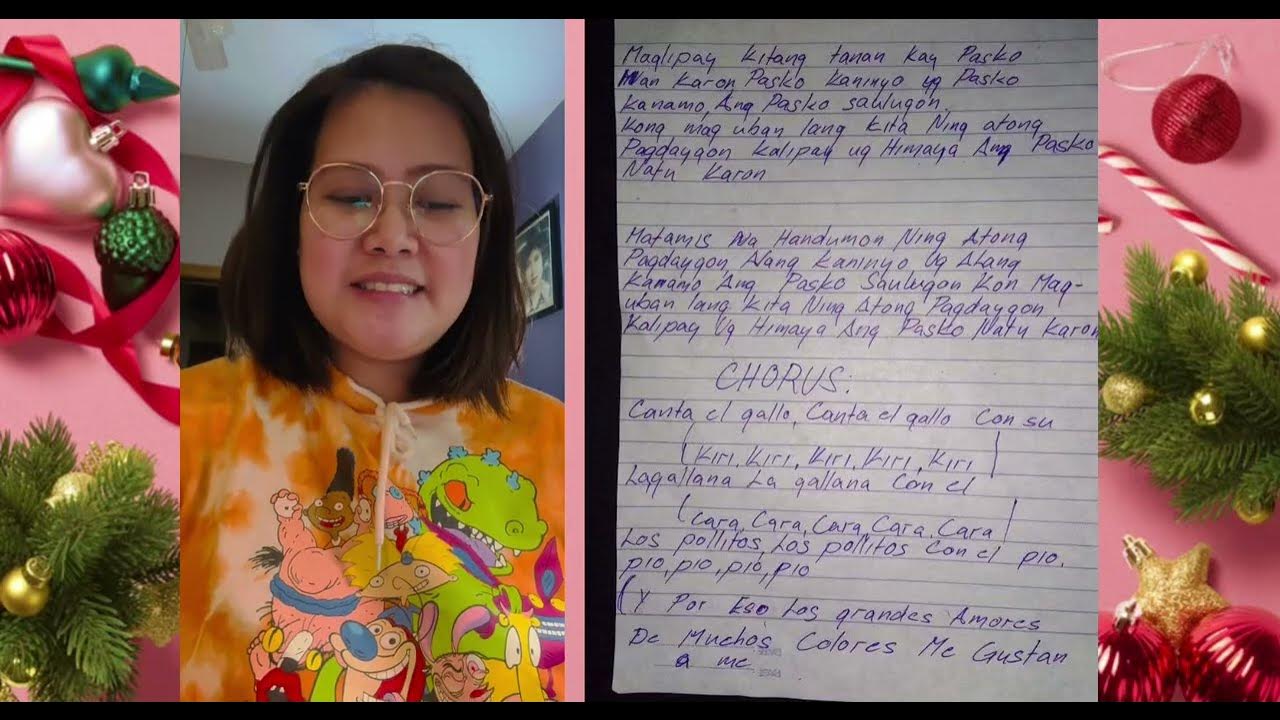 Maglipay kitang tanan kay Pasko
Man Karon Pasko kaninyo ug Pasko
kanamo, Ang Pasko saulugon.
Kong mag uban lang kita Ning atong
Pagdaygon kalipay ug Himaya Ang Pasko
Natu Karon
Matamis Nga Handumon Ning Atong
Pagdaygon Alang Kaninyo Ug Alang
Kanamo Ang Pasko Saulugon Kon Mag-
uban lang kita Ning Atong Pagdaygon
Kalipay Ug Himaya Ang Pasko Natu Karon
CHORUS:
Canta el gallo, Canta el gallo con su
(Kiri, Kiri, Kiri, Kiri, Kiri)
Lagallana La gallana Con el
(Cara, Cara, Cara, Cara, Cara)
Los pollitos, Los pollitos con el pio,
pio, pio, pio, pio
(Y Por Eso Los grandes Amores
De Muchos Colores Me Gustan
a me